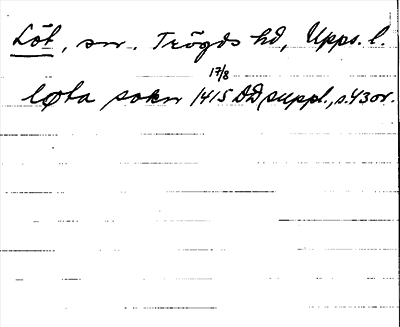 Löt, sn. Trögds hd, Upps. l.
løta sokn 17/8 1415 DD suppl., s. 43 or.